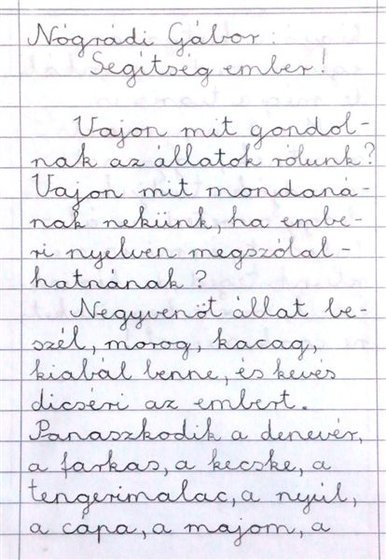 Nógrádi Gábor:
Segítség ember!
Vajon mit gondol-
nak az állatok rólunk?
Vajon mit mondaná-
nak nekünk, ha embe-
ri nyelven megszólal-
hatnának?
Negyvenöt állat be-
szél, morog, kacag,
kiabál benne, és kevés
dicséri az embert.
Panaszkodik a denevér,
a farkas, a kecske, a
tengerimalac, a nyúl,
a cápa, a majom, a